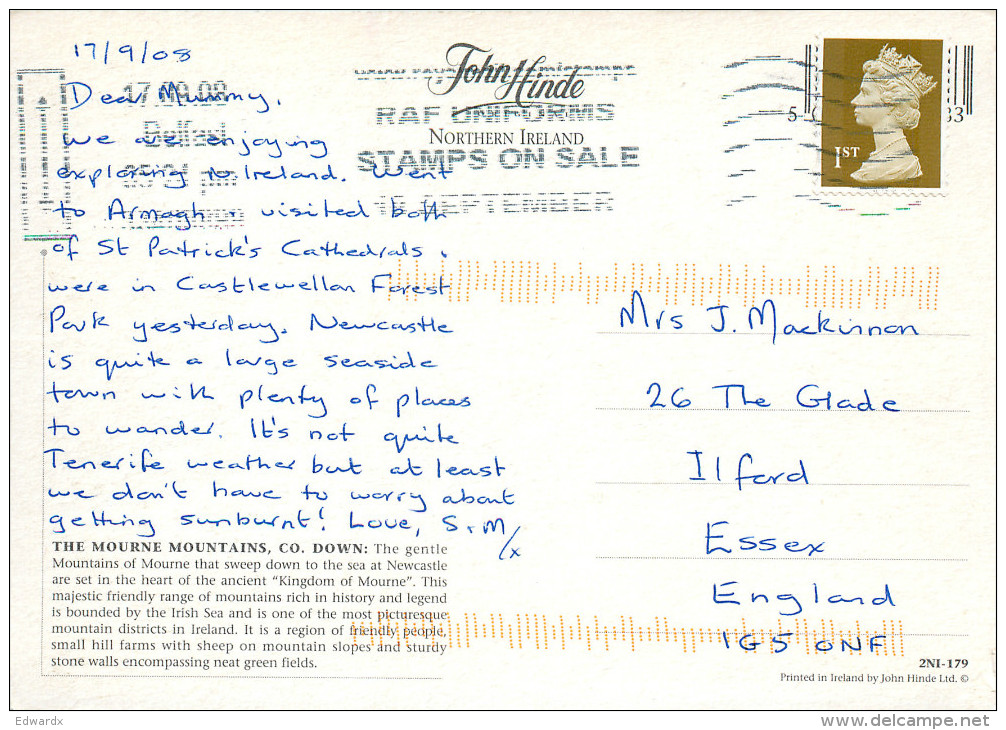 17/9/08
Dear Mummy,
We are enjoying
exploring N. Ireland. Went
to Armagh + visited both
of St Patrick's Cathedrals,
were in Castlewellan Forest
Park yesterday. Newcastle
is quite a large seaside
town with plenty of places
to wander. It's not quite
Tenerife weather but at least
we don't have to worry about
getting sunburnt! Love, S+M
/x
THE MOURNE MOUNTAINS, CO. DOWN: The gentle
Mountains of Mourne that sweep down to the sea at Newcastle
are set in the heart of the ancient "Kingdom of Mourne". This
majestic friendly range of mountains rich in history and legend
is bounded by the Irish Sea and is one of the most picturesque
mountain districts in Ireland. It is a region of friendly people,
small hill farms with sheep on mountain slopes and sturdy
stone walls encompassing neat green fields.
John Hinde
NORTHERN IRELAND
RAF UNIFORMS
STAMPS ON SALE
SEPTEMBER
1ST
5
33
Mrs J. Mackinnon
26 The Glade
Ilford
Essex
England
IG5 0NF
2NI-179
Printed in Ireland by John Hinde Ltd. ©
Edwardx
delcampe.net